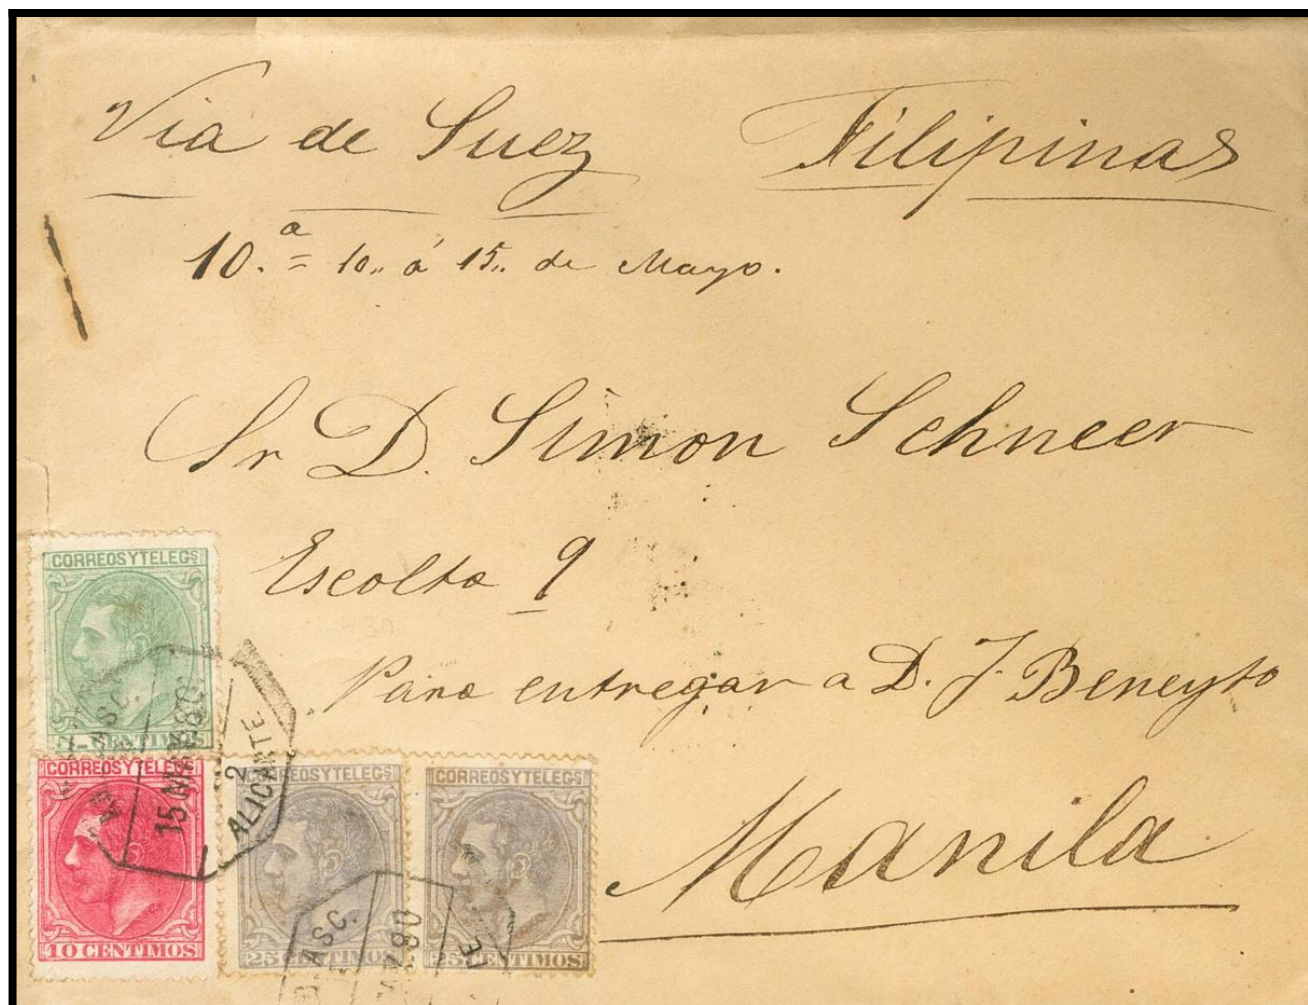 Via de Suez Filipinas
10.ª = 10,, á 15,, de Mayo.
Sr D. Simon Schneer
Escolta 9
Para entregar a D. J. Beneyto
Manila
CORREOS Y TELEGS
CENTIMOS
CORREOS Y TELEGS
10 CENTIMOS
CORREOS Y TELEGS
25 CENTIMOS
CORREOS Y TELEGS
25 CENTIMOS
ASC.
80
2
ALICANTE
ASC.
80